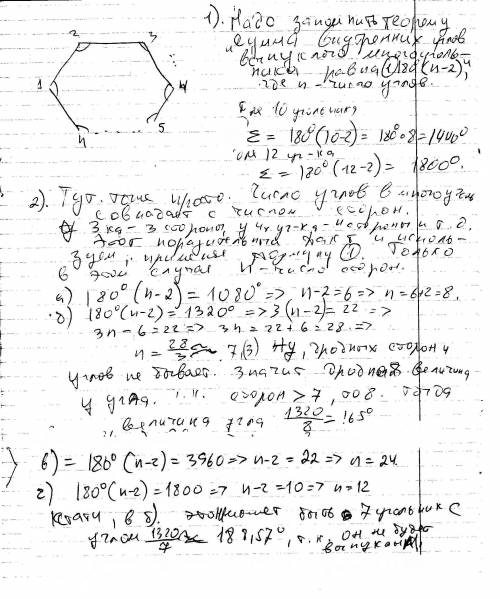 1). Надо запомнить теорему
2 3
"сумма внутренних углов
выпуклого многоуголь-
ника равна (1) 180°(n-2)",
1 4
где n - число углов.
n 5
Для 10 угольника
Σ = 180°(10-2) = 180°·8 = 1440°
для 12 уг-ка
Σ = 180°(12-2) = 1800°.
2). Тут тоже просто. Число углов в многоуг
совпадает с числом сторон.
У 3ка - 3 стороны, у 4 уг-ка - 4 стороны и т.д.
Этот поразительный факт и исполь-
зуем, применяя формулу (1). Только
в этом случае n - число сторон.
а) 180°(n-2) = 1080° => n-2=6 => n=6+2=8.
б) 180°(n-2) = 1320° => 3(n-2) = 22 =>
3n-6=22 => 3n=22+6=28 =>
n = 28/3 ≈ 7,(3) Ну, дробных сторон и
углов не бывает. Значит дробная величина
у угла. сторон > 7, 8. Тогда
величина угла 1320/8 = 165°
в) = 180°(n-2) = 3960 => n-2 = 22 => n = 24
г) 180°(n-2) = 1800 => n-2 = 10 => n = 12
Кстати, в б). не может быть 7 угольник с
углом 1320/7 ≈ 188,57°, т.к. он не будет
выпуклым.